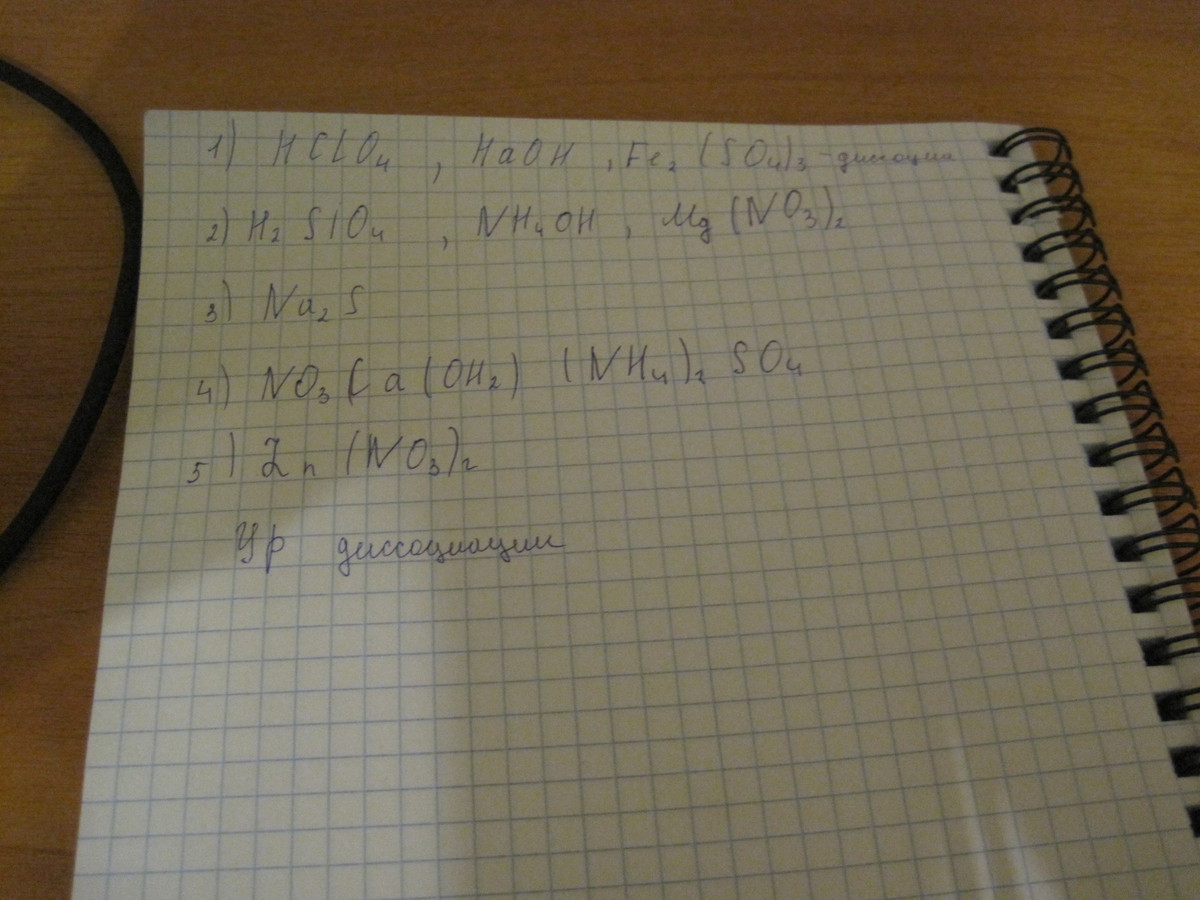 1) HClO₄ , HaOH , Fe₂ (SO₄)₃ - диссоциа
2) H₂ SiO₄ , NH₄OH , Mg (NO₃)₂
3) Na₂ S
4) NO₃ Ca (OH₂) (NH₄)₂ SO₄
5) Zn (NO₃)₂
Ур диссоциации